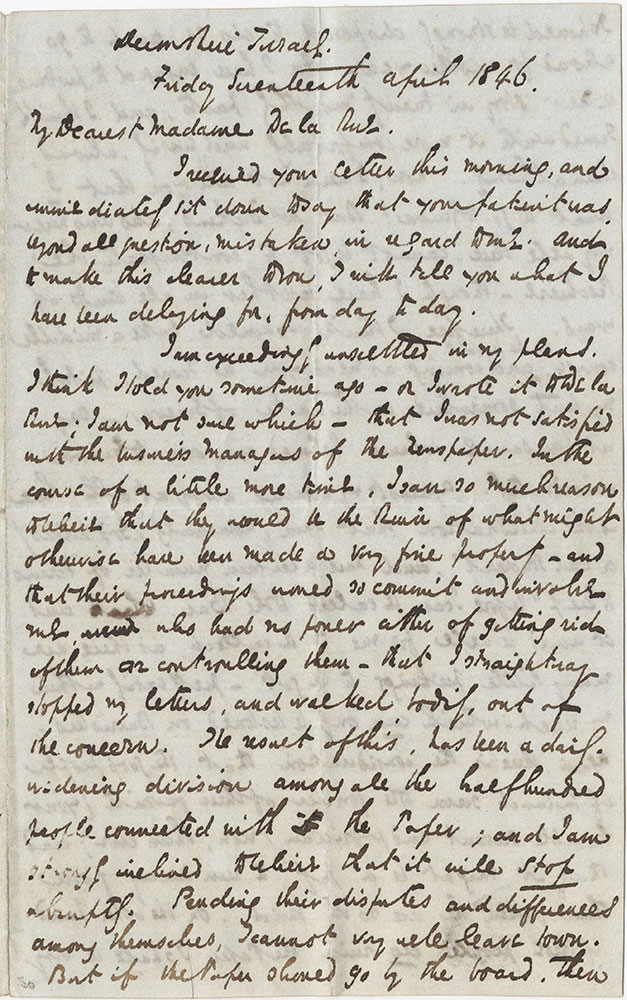 Devonshire Terrace.
Friday Seventeenth April 1846.
My Dearest Madame De la Rue.
I received your letter this morning, and
immediately sit down to say that your patient was,
beyond all question, mistaken in regard to me. And
to make this clearer to you, I will tell you what I
have been delaying for, from day to day.
I am exceedingly unsettled in my plans.
I think I told you sometime ago – or I wrote it to De la
Rue; I am not sure which – that I was not satisfied
with the business managers of the Newspaper. In the
course of a little more time, I saw so much reason
to believe that they would be the Ruin of what might
otherwise have been made a very fine property – and
that their proceedings would so commit and involve
me, who had no power either of getting rid
of them or controlling them – that I straightway
stopped my letters, and walked bodily, out of
the concern. The result of this, has been a daily
widening division among all the half hundred
people connected with the Paper; and I am
strongly inclined to believe that it will stop
abruptly. Pending their disputes and differences
among themselves, I cannot very well leave town.
But if the Paper should go by the board, then